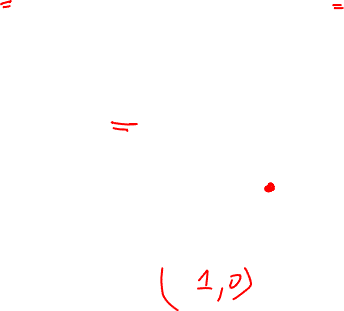 =
=
=
(1,0)